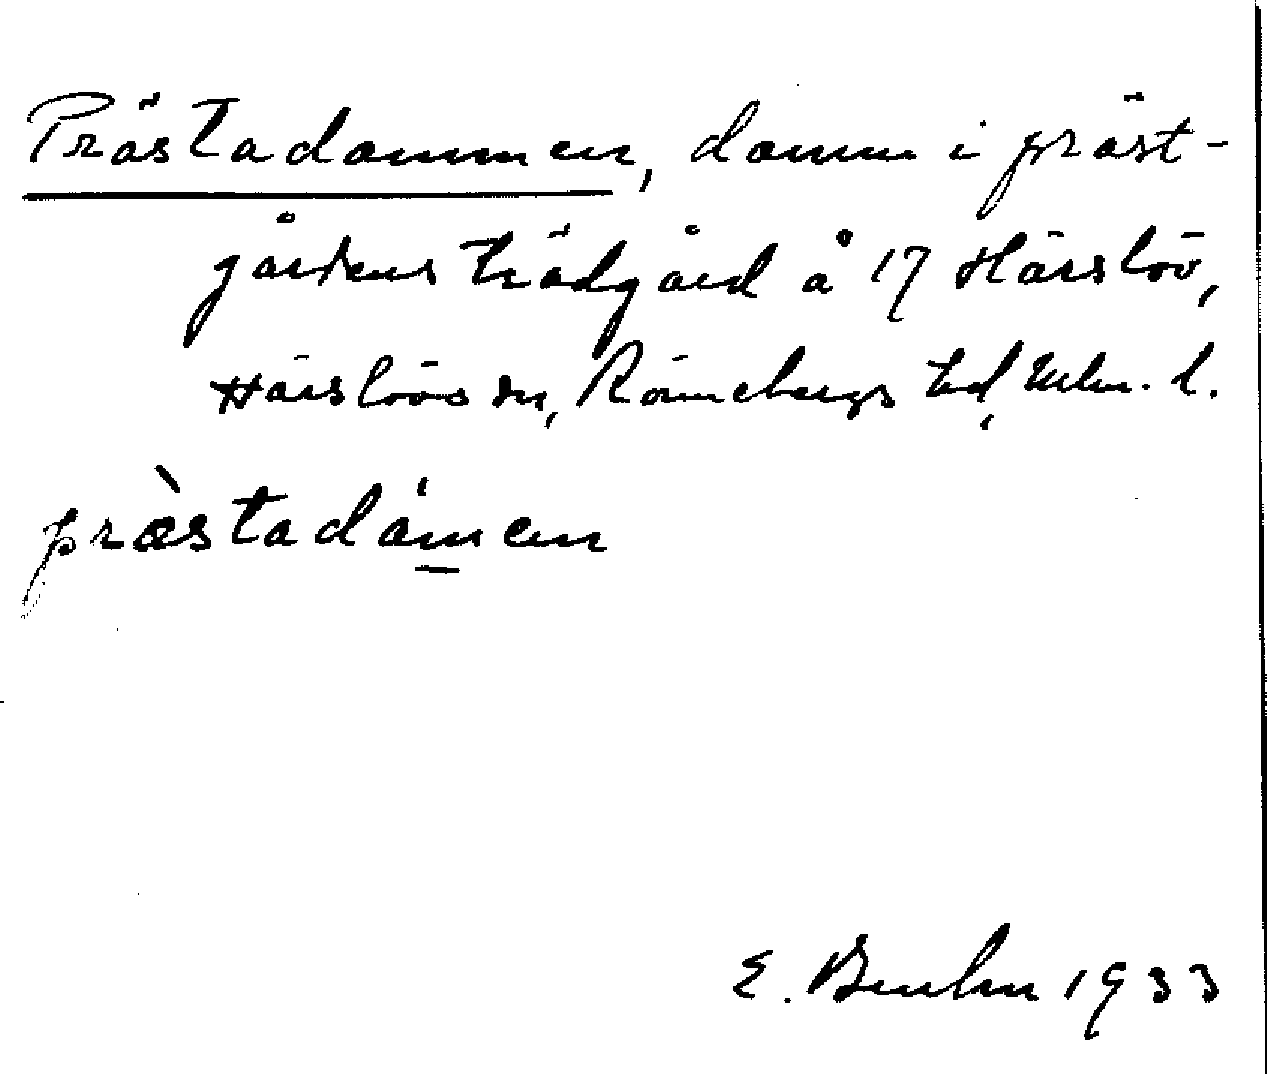 Prästadammen, damm i präst-
gårdens trädgård å 17 Härslöv,
Härslövs sn, Rönnebergs hd, Mlm. l.
præ̀stadám̲en
E. 1933